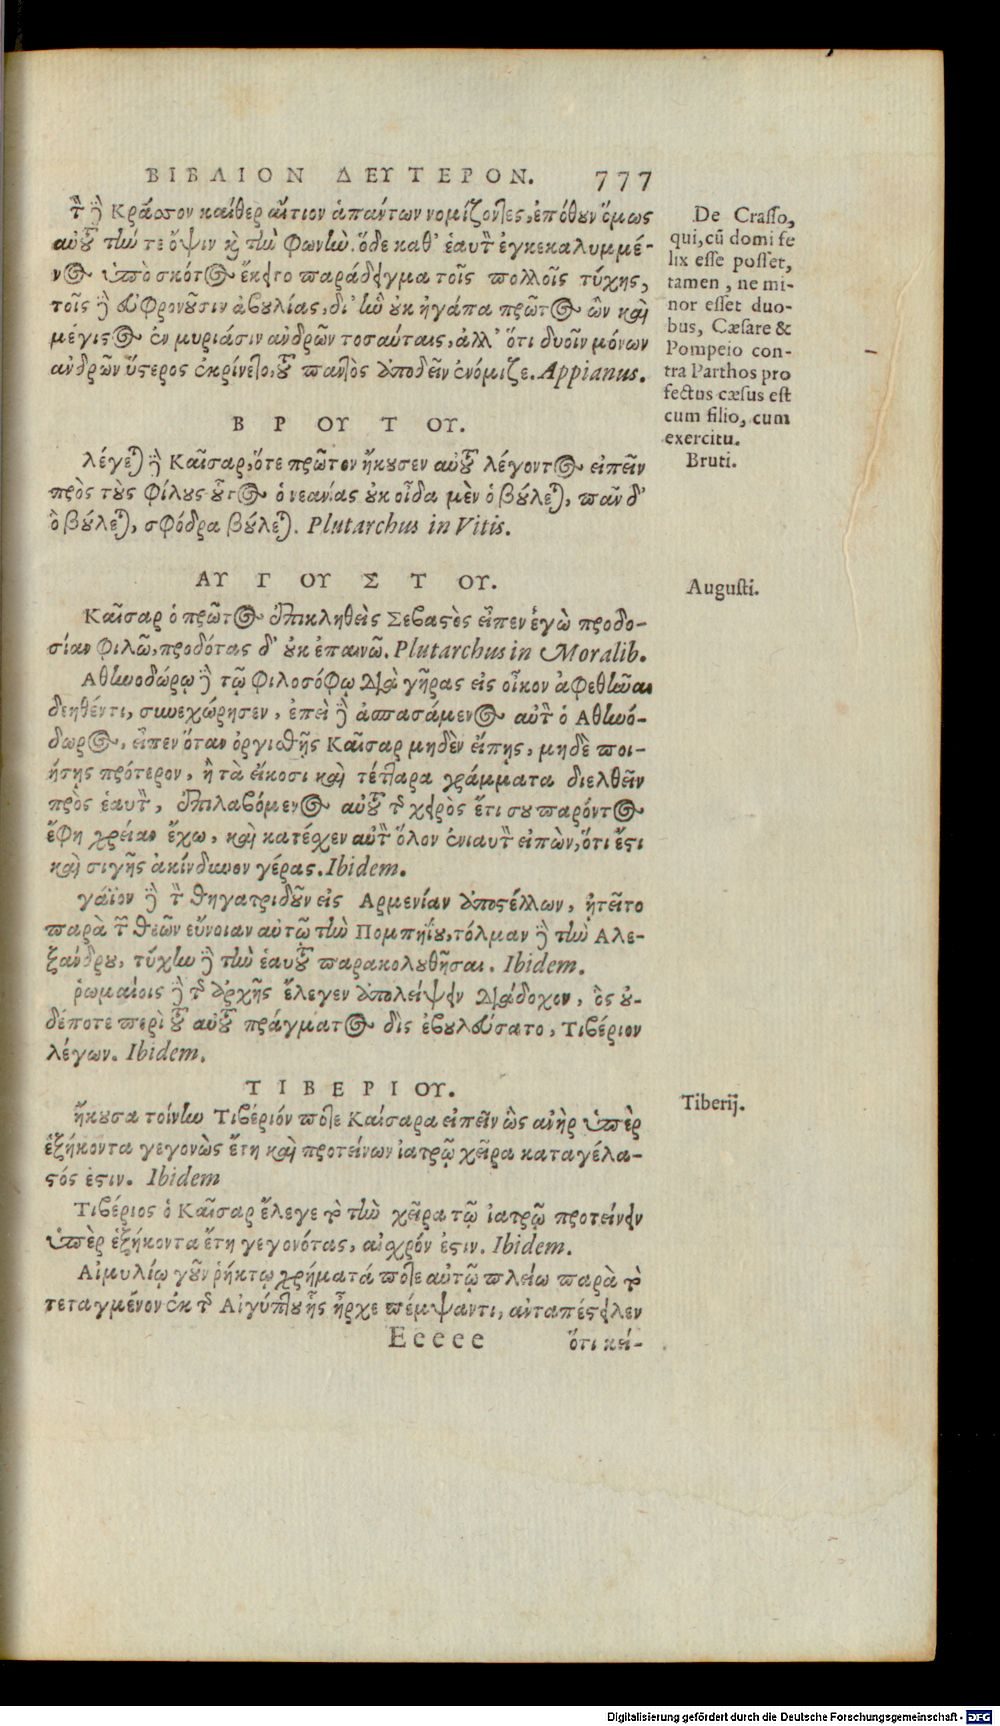 ΒΙΒΛΙΟΝ ΔΕΥΤΕΡΟΝ. 777
τὸν δὲ Κράσσον καίπερ αἴτιον ἁπάντων νομίζοντες, ἐπόθουν ὅμως
αὐτοῦ τήν τε ὄψιν καὶ τὴν φωνὴν. ὅδε καθ' ἑαυτὸν ἐγκεκαλυμμέ-
νος ὑπὸ σκότος ἔκειτο παράδειγμα τοῖς πολλοῖς τύχης,
τοῖς δὲ εὐφρονοῦσιν ἀβουλίας, δι' ἣν οὐκ ἠγάπα πρῶτος ὢν καὶ
μέγιστος ἐν μυριάσιν ἀνδρῶν τοσαύταις, ἀλλ' ὅτι δυοῖν μόνων
ἀνδρῶν ὕστερος ἐκρίνετο, τοῦ παντὸς ἀποδεῖν ἐνόμιζε. Appianus.
De Crasso,
qui, cũ domi fe
lix esse posset,
tamen, ne mi-
nor esset duo-
bus, Cæsare &
Pompeio con-
tra Parthos pro
fectus cæsus est
cum filio, cum
exercitu.
ΒΡΟΥΤΟΥ.
Bruti.
λέγεται δὲ Καῖσαρ, ὅτε πρῶτον ἤκουσεν αὐτοῦ λέγοντος εἰπεῖν
πρὸς τοὺς φίλους οὗτος ὁ νεανίας οὐκ οἶδα μὲν ὃ βούλεται, πᾶν δ'
ὃ βούλεται, σφόδρα βούλεται. Plutarchus in Vitis.
ΑΥΓΟΥΣΤΟΥ.
Augusti.
Καῖσαρ ὁ πρῶτος ἐπικληθεὶς Σεβαστὸς εἶπεν ἐγὼ προδο-
σίαν φιλῶ, προδότας δ' οὐκ ἐπαινῶ. Plutarchus in Moralib.
Αθηνοδώρῳ δὲ τῷ φιλοσόφῳ διὰ γῆρας εἰς οἶκον ἀφεθῆναι
δεηθέντι, συνεχώρησεν, ἐπεὶ δὲ ἀσπασάμενος αὐτὸν ὁ Αθηνό-
δωρος, εἶπεν ὅταν ὀργισθῇς Καῖσαρ μηδὲν εἴπῃς, μηδὲ ποι-
ήσῃς πρότερον, ἢ τὰ εἴκοσι καὶ τέτταρα γράμματα διελθεῖν
πρὸς ἑαυτὸν, ἐπιλαβόμενος αὐτοῦ τῆς χειρὸς ἔτι σου παρόντος
ἔφη χρείαν ἔχω, καὶ κατέσχεν αὐτὸν ὅλον ἐνιαυτὸν εἰπὼν, ὅτι ἔστι
καὶ σιγῆς ἀκίνδυνον γέρας. Ibidem.
γάϊον δὲ τὸν θηγατριδοῦν εἰς Αρμενίαν ἀποστέλλων, ᾐτεῖτο
παρὰ τῶν θεῶν εὔνοιαν αὐτῷ τὴν Πομπηΐου, τόλμαν δὲ τὴν Αλε-
ξάνδρου, τύχην δὲ τὴν ἑαυτοῦ παρακολουθῆσαι. Ibidem.
ῥωμαίοις δὲ τῆς ἀρχῆς ἔλεγεν ἀπολείψειν διάδοχον, ὃς οὐ-
δέποτε περὶ τοῦ αὐτοῦ πράγματος δὶς ἐβουλεύσατο, Τιβέριον
λέγων. Ibidem.
ΤΙΒΕΡΙΟΥ.
Tiberij.
ἤκουσα τοίνυν Τιβέριόν ποτε Καίσαρα εἰπεῖν ὡς ἀνὴρ ὑπὲρ
ἑξήκοντα γεγονὼς ἔτη καὶ προτείνων ἰατρῷ χεῖρα καταγέλα-
στός ἐστιν. Ibidem
Τιβέριος ὁ Καῖσαρ ἔλεγε τὸ τὴν χεῖρα τῷ ἰατρῷ προτείνειν
ὑπὲρ ἑξήκοντα ἔτη γεγονότας, αἰσχρόν ἐστιν. Ibidem.
Αἰμυλίῳ γοῦν ῥήκτῳ χρήματά ποτε αὐτῷ πλείω παρὰ τὸ
τεταγμένον ἐκ τῆς Αἰγύπτου ἧς ἦρχε πέμψαντι, ἀνταπέστειλεν
Eeeee ὅτι κεί-
Digitalisierung gefördert durch die Deutsche Forschungsgemeinschaft - DFG